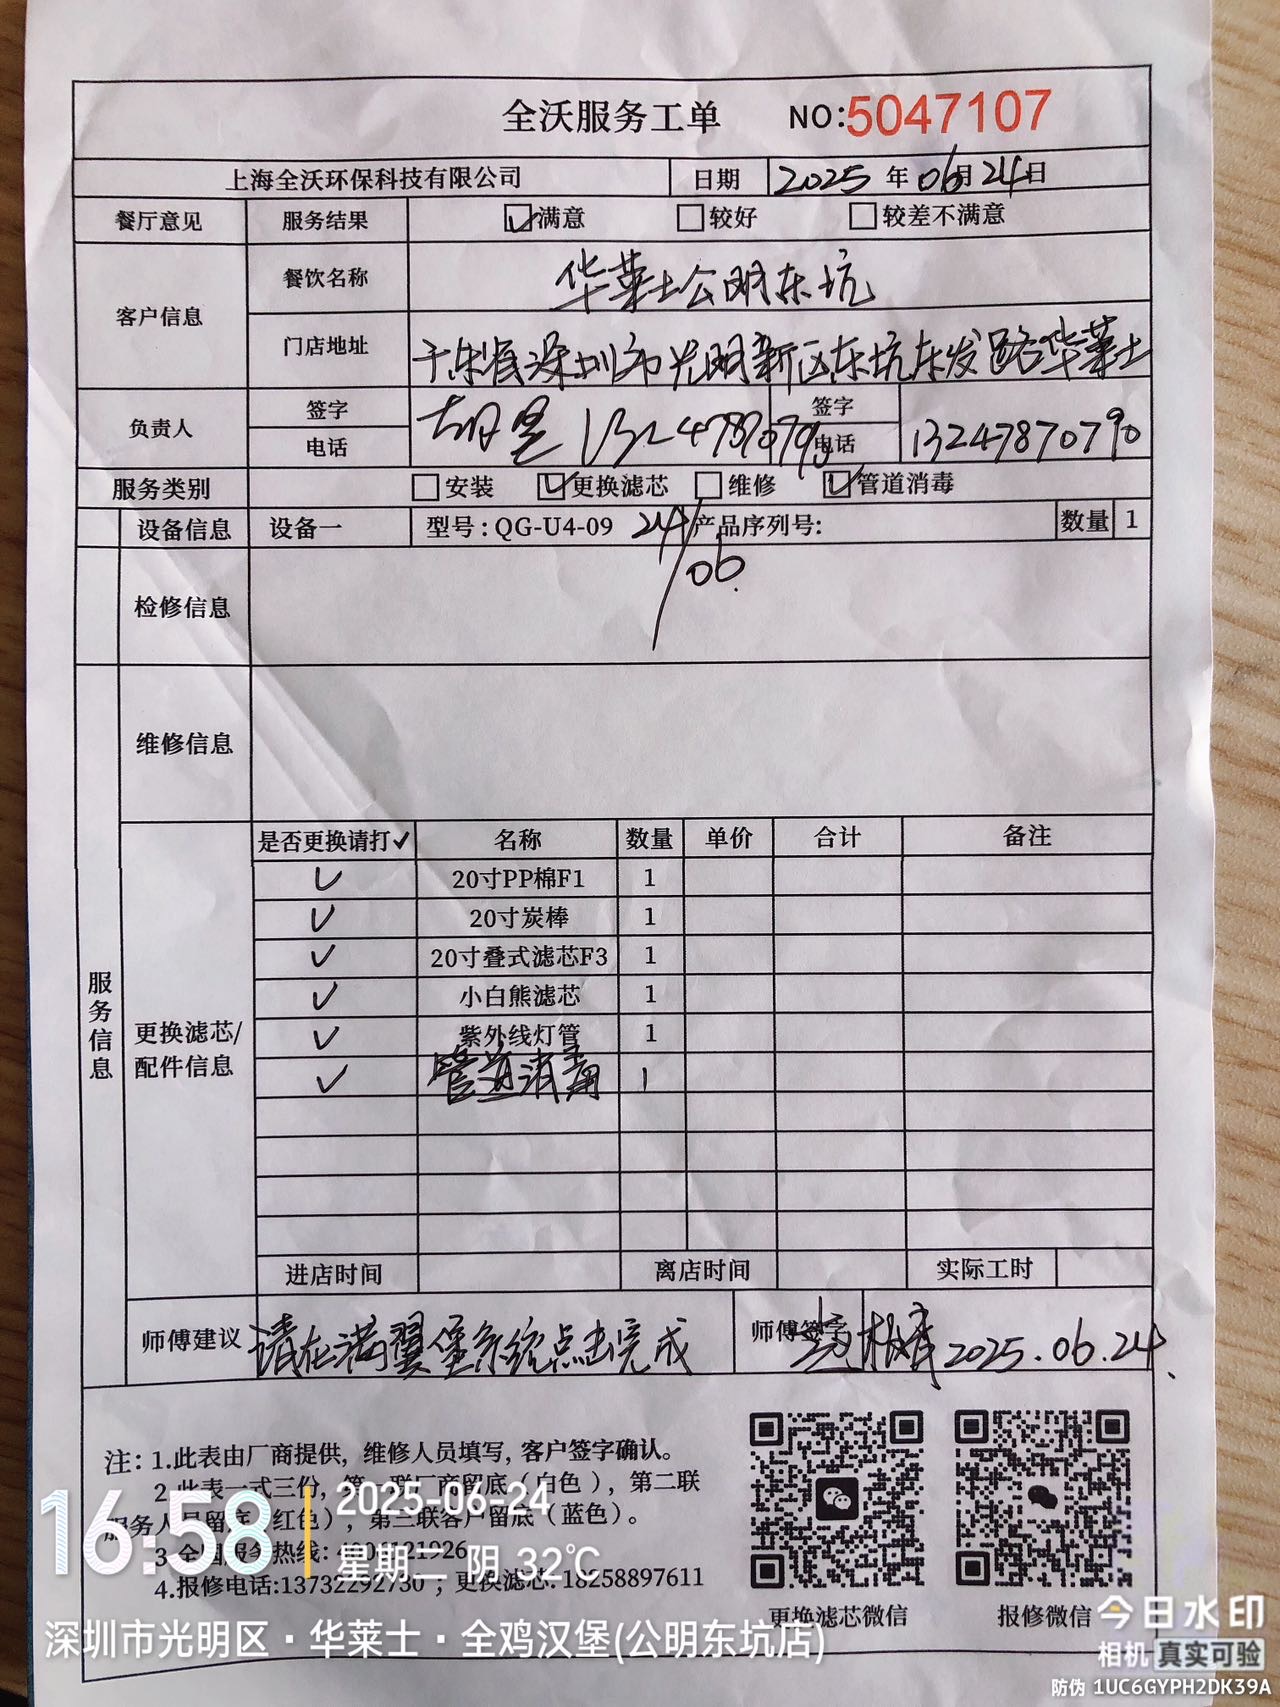 全沃服务工单 NO:5047107
上海全沃环保科技有限公司 日期 2025 年 06 月 24 日
餐厅意见 服务结果 满意 较好 较差不满意
客户信息 餐饮名称 华莱士公明东坑
门店地址 广东省深圳市光明新区东坑东发路华莱士
负责人 签字 签字
电话 13247870790 电话 13247870790
服务类别 安装 更换滤芯 维修 管道消毒
设备信息 设备一 型号:QG-U4-09 24/06 产品序列号: 数量 1
检修信息
维修信息
服务信息
更换滤芯/
配件信息
是否更换请打✓ 名称 数量 单价 合计 备注
✓ 20寸PP棉F1 1
✓ 20寸炭棒 1
✓ 20寸叠式滤芯F3 1
✓ 小白熊滤芯 1
✓ 紫外线灯管 1
✓ 管道消毒 1
进店时间 离店时间 实际工时
师傅建议 请在满翼堡系统点击完成 师傅签字 2025.06.24
注:1.此表由厂商提供,维修人员填写,客户签字确认。
2.此表一式三份,第一联厂商留底(白色),第二联
服务人员留底(红色),第三联客户留底(蓝色)。
3.全国服务热线:
4.报修电话:13732292730;更换滤芯:18258897611
更换滤芯微信 报修微信
16:58 2025-06-24
星期二 阴 32℃
深圳市光明区·华莱士·全鸡汉堡(公明东坑店)
今日水印
相机 真实可验
防伪 1UC6GYPH2DK39A